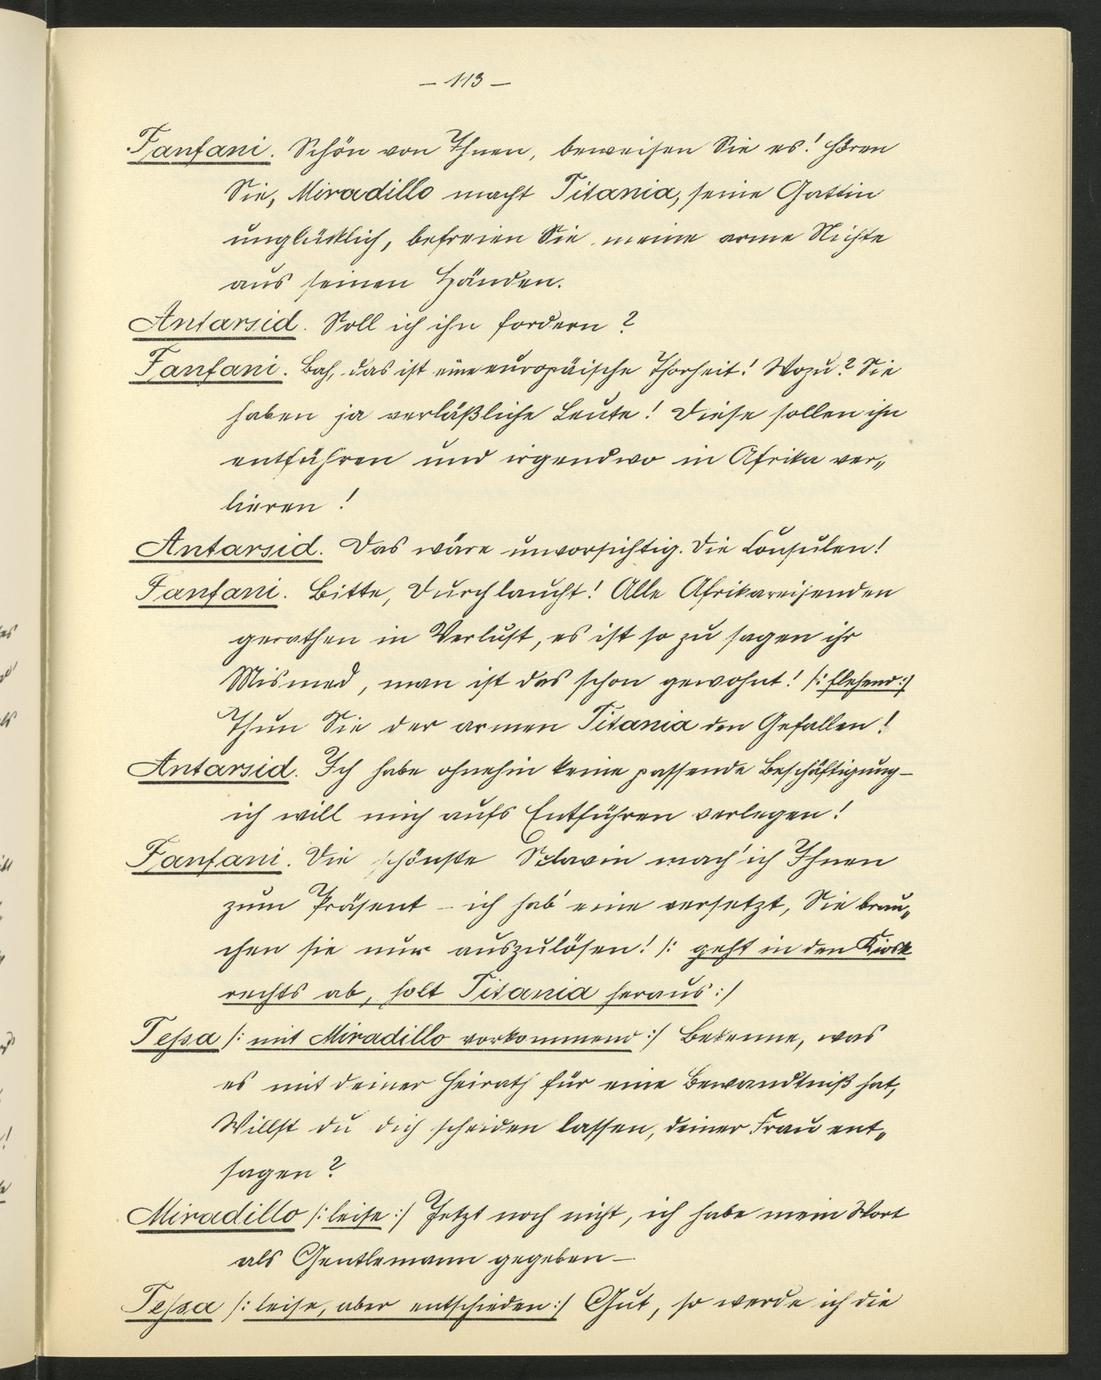 – 113 –
Fanfani. Schön von Ihnen, beweisen Sie es! Hören
Sie, Miradillo macht Titania, seine Gattin
unglücklich, befreien Sie meine arme Nichte
aus seinen Händen.
Antarsid. Soll ich ihn fordern?
Fanfani. Bah, das ist eine europäische Thorheit! Wozu? Sie
haben ja verläßliche Leute! Diese sollen ihn
entführen und irgendwo in Afrika ver„
lieren!
Antarsid. Das wäre unvorsichtig. Die Consulen!
Fanfani. Bitte, Durchlaucht! Alle Afrikareisenden
gerathen in Verlust, es ist so zu sagen ihr
Mismed, man ist das schon gewohnt! /: flehend :/
Thun Sie der armen Titania den Gefallen!
Antarsid. Ich habe ohnehin keine passende Beschäftigung –
ich will mich aufs Entführen verlegen!
Fanfani. Die schönste Sclavin mach' ich Ihnen
zum Präsent – ich hab' eine versetzt, Sie brau„
chen sie nur auszulösen! /: geht in den Kiosk
rechts ab, holt Titania heraus :/
Tessa /: mit Miradillo vorkommend :/ Bekenne, was
es mit deiner Heirath für eine Bewandtniß hat,
Willst du dich scheiden lassen, deiner Frau ent„
sagen?
Miradillo /: leise :/ Jetzt noch nicht, ich habe mein Wort
als Gentlemann gegeben –
Tessa /: leise, aber entschieden :/ Gut, so werde ich die